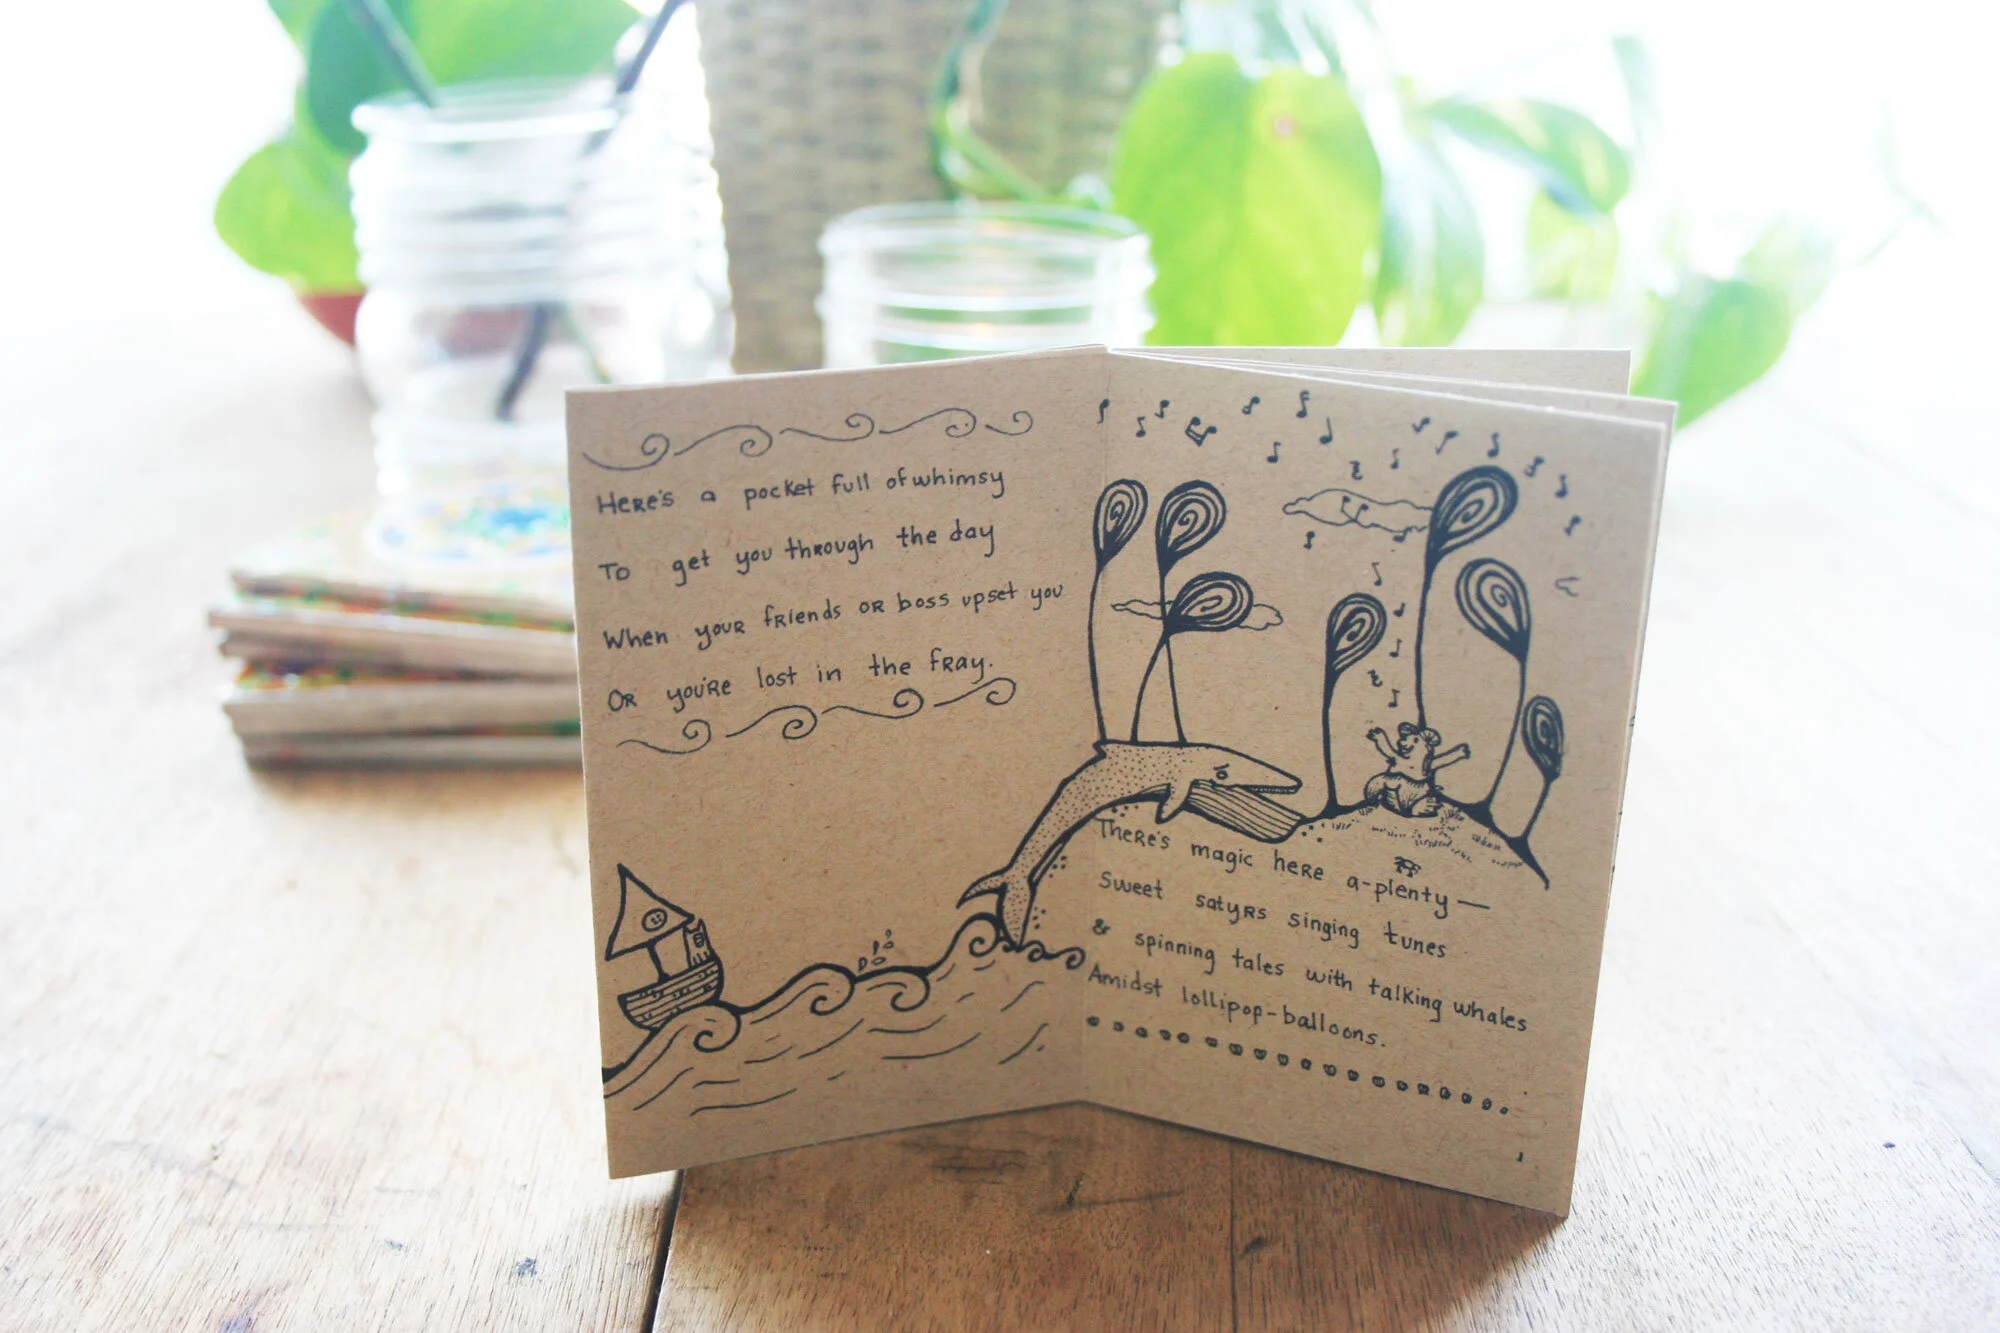 Here's a pocket full of whimsy
To get you through the day
When your friends or boss upset you
Or you're lost in the fray.
There's magic here a-plenty—
Sweet satyrs singing tunes
& spinning tales with talking whales
Amidst lollipop-balloons.